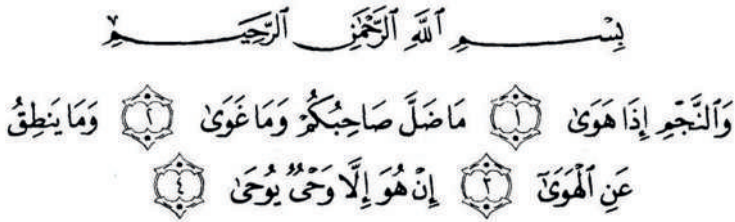 بِسْمِ ٱللَّهِ ٱلرَّحْمَٰنِ ٱلرَّحِيمِ
وَٱلنَّجْمِ إِذَا هَوَىٰ ١ مَا ضَلَّ صَاحِبُكُمْ وَمَا غَوَىٰ ٢ وَمَا يَنطِقُ
عَنِ ٱلْهَوَىٰٓ ٣ إِنْ هُوَ إِلَّا وَحْىٌ يُوحَىٰ ٤